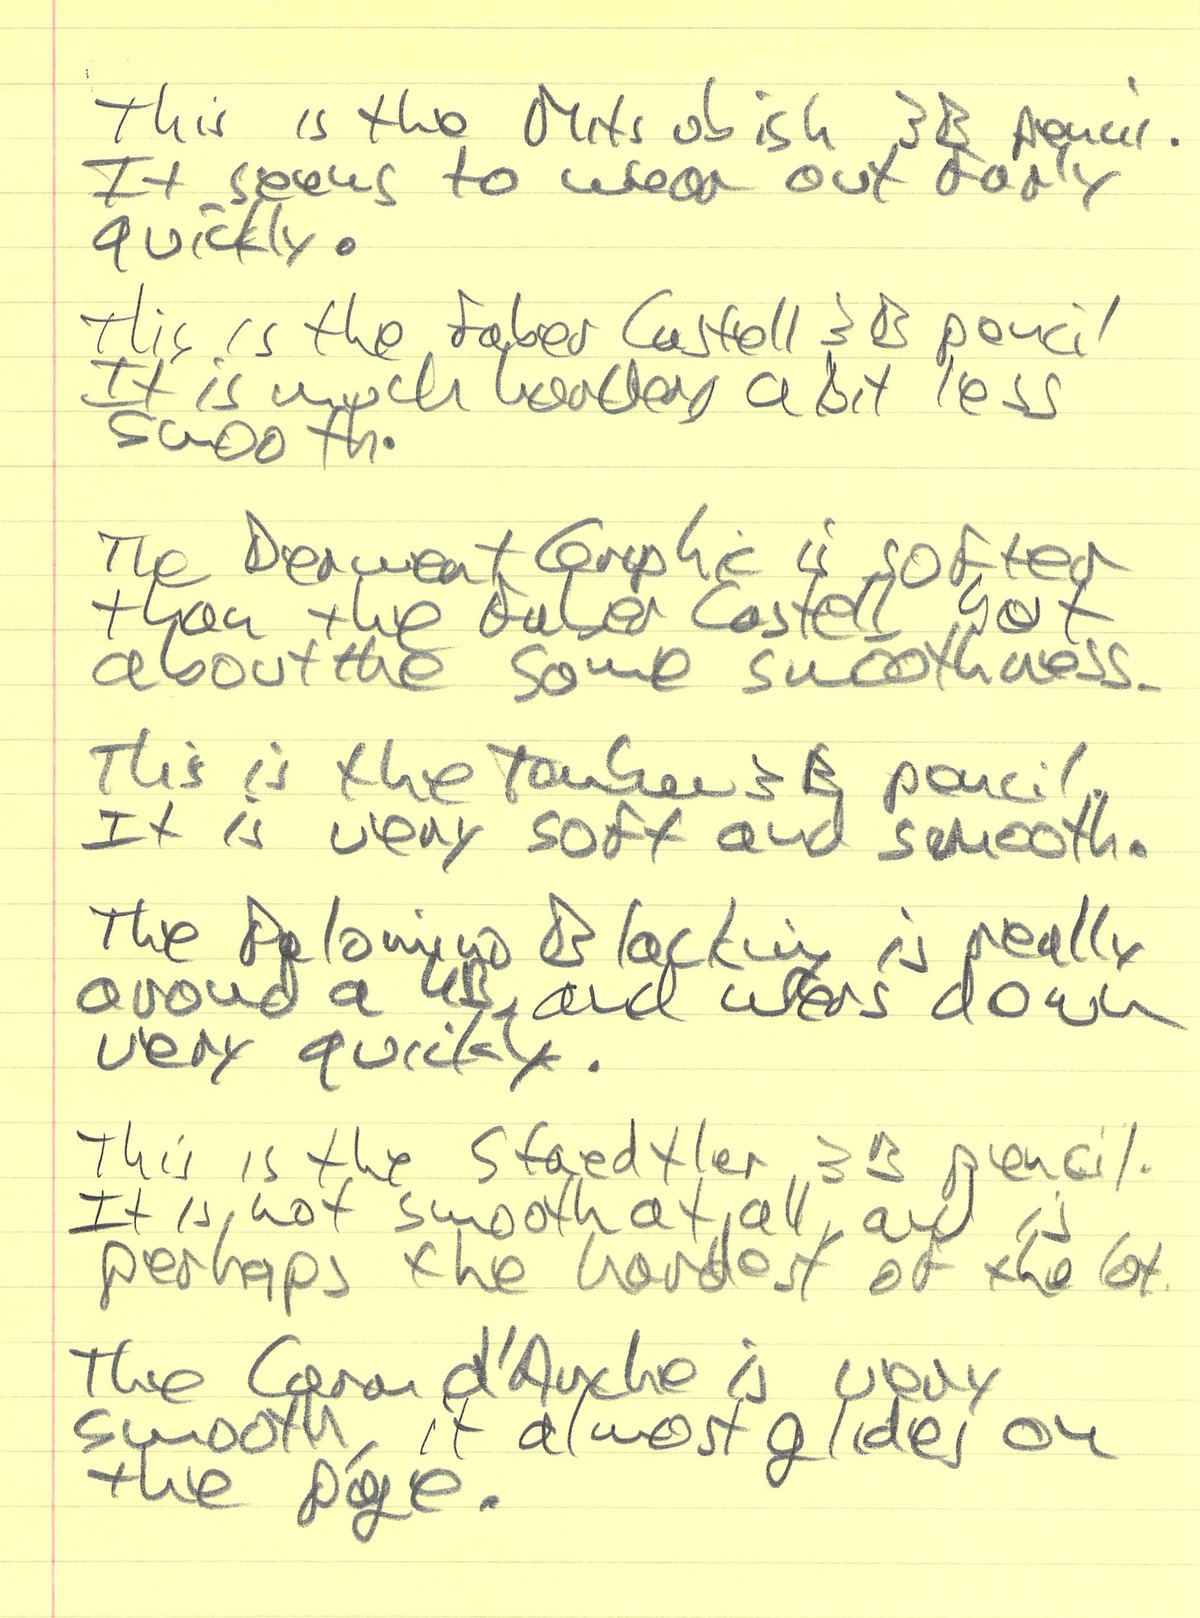 This is the Mitsubish 3B pencil.
It seems to wear out farly
quickly.
This is the Faber Castell 3B pencil
It is much harder, a bit less
smooth.
The Derwent Graphic is softer
than the Faber Castell but
about the same smoothness.
This is the Tombow 3B pencil.
It is very soft and smooth.
The Palomino Blackwing is really
aroud a 4B, and wears down
very quickly.
This is the Staedtler 3B pencil.
It is not smooth at all, and is
perhaps the hardest of the lot.
The Caran d'Arche is very
smooth, it almost glides on
the page.